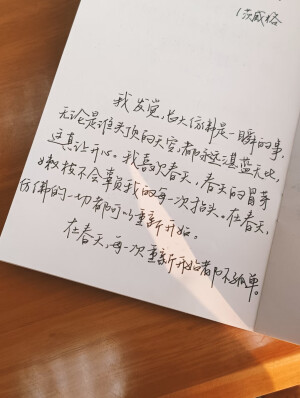 我发觉,长大仿佛是一瞬的事,
无论是谁头顶的天空,都永远湛蓝无比,
这真让开心。我喜欢春天,春天的冒芽
枝不会辜负我的每一次抬头。在春天,
仿佛的一切都可以重新开始。
在春天,每一次重新开始都不孤单。